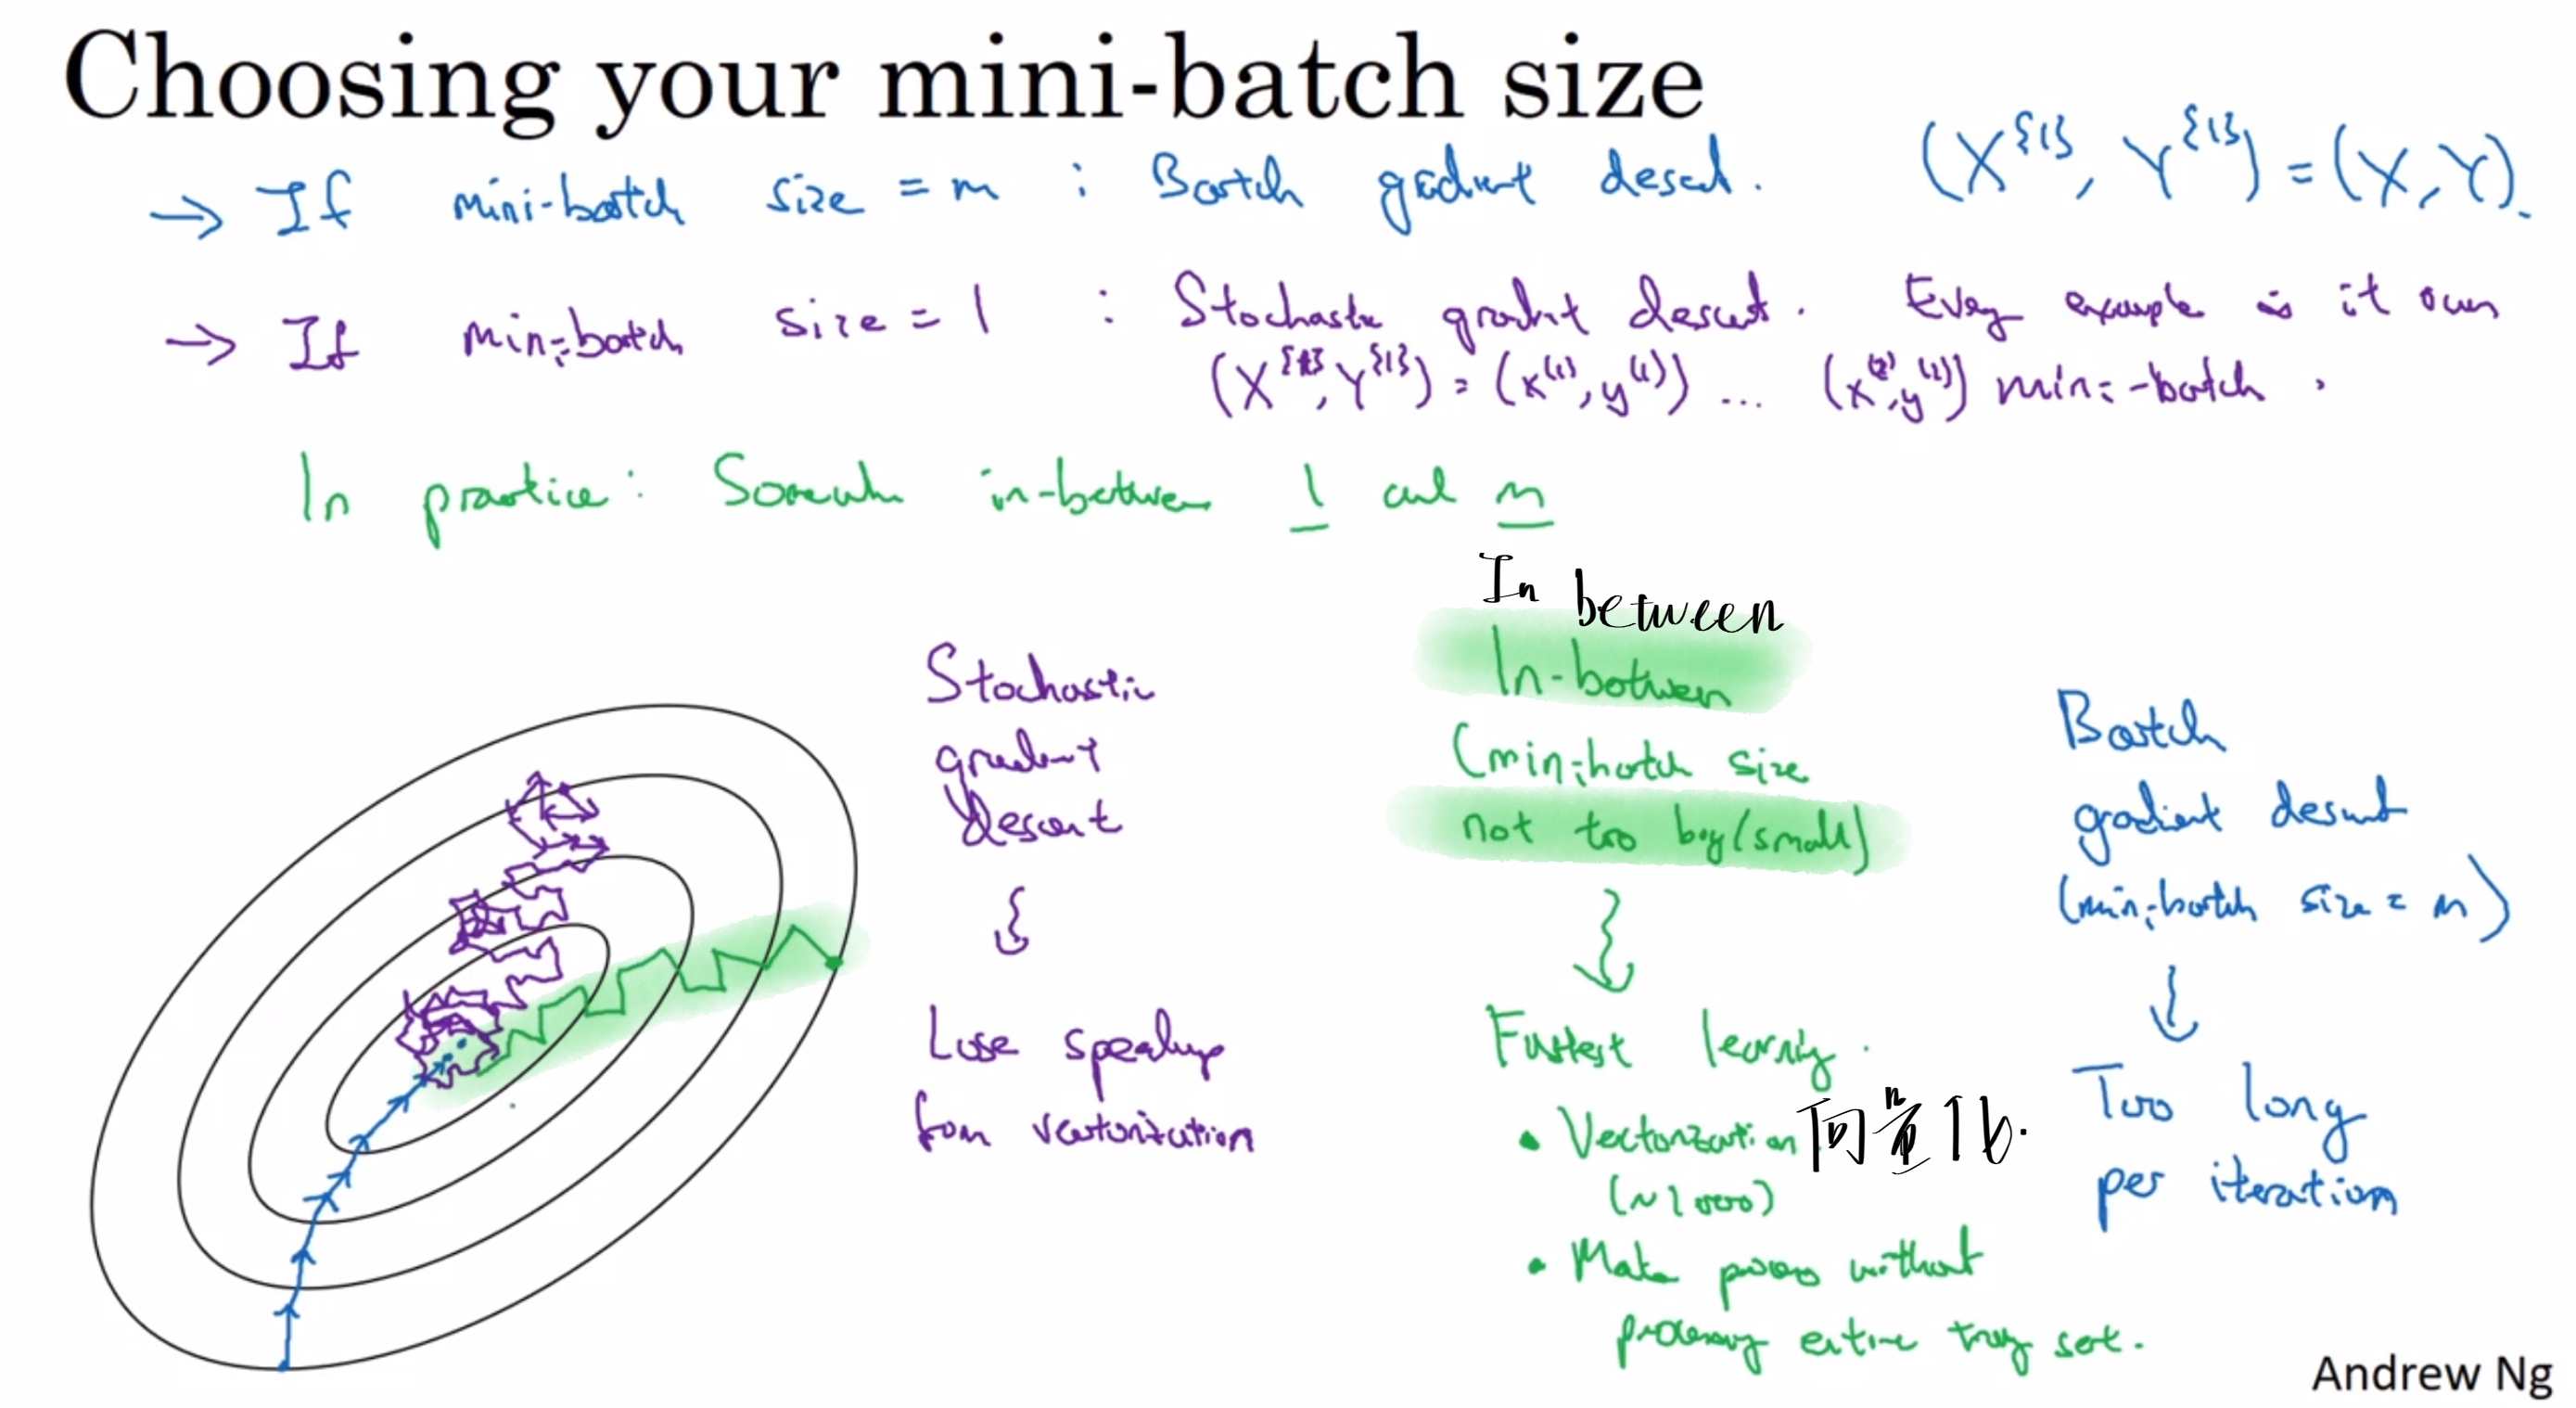 Choosing your mini-batch size
→ If mini-batch size = m : Batch gradient descent. (X^{1}, Y^{1}) = (X, Y).
→ If mini-batch size = 1 : Stochastic gradient descent. Every example is it own
(X^{1}, Y^{1}) = (x^(1), y^(1)) ... (x^(2), y^(2)) mini-batch.
In practice: Somewhere in-between 1 and m
Stochastic
gradient
descent
Lose speedup
from vectorization
In between
In-between
(mini-batch size
not too big/small)
Fastest learning.
• Vectorization 向量化.
(~1000)
• Make progress without
processing entire training set.
Batch
gradient descent
(mini-batch size = m)
Too long
per iteration
Andrew Ng